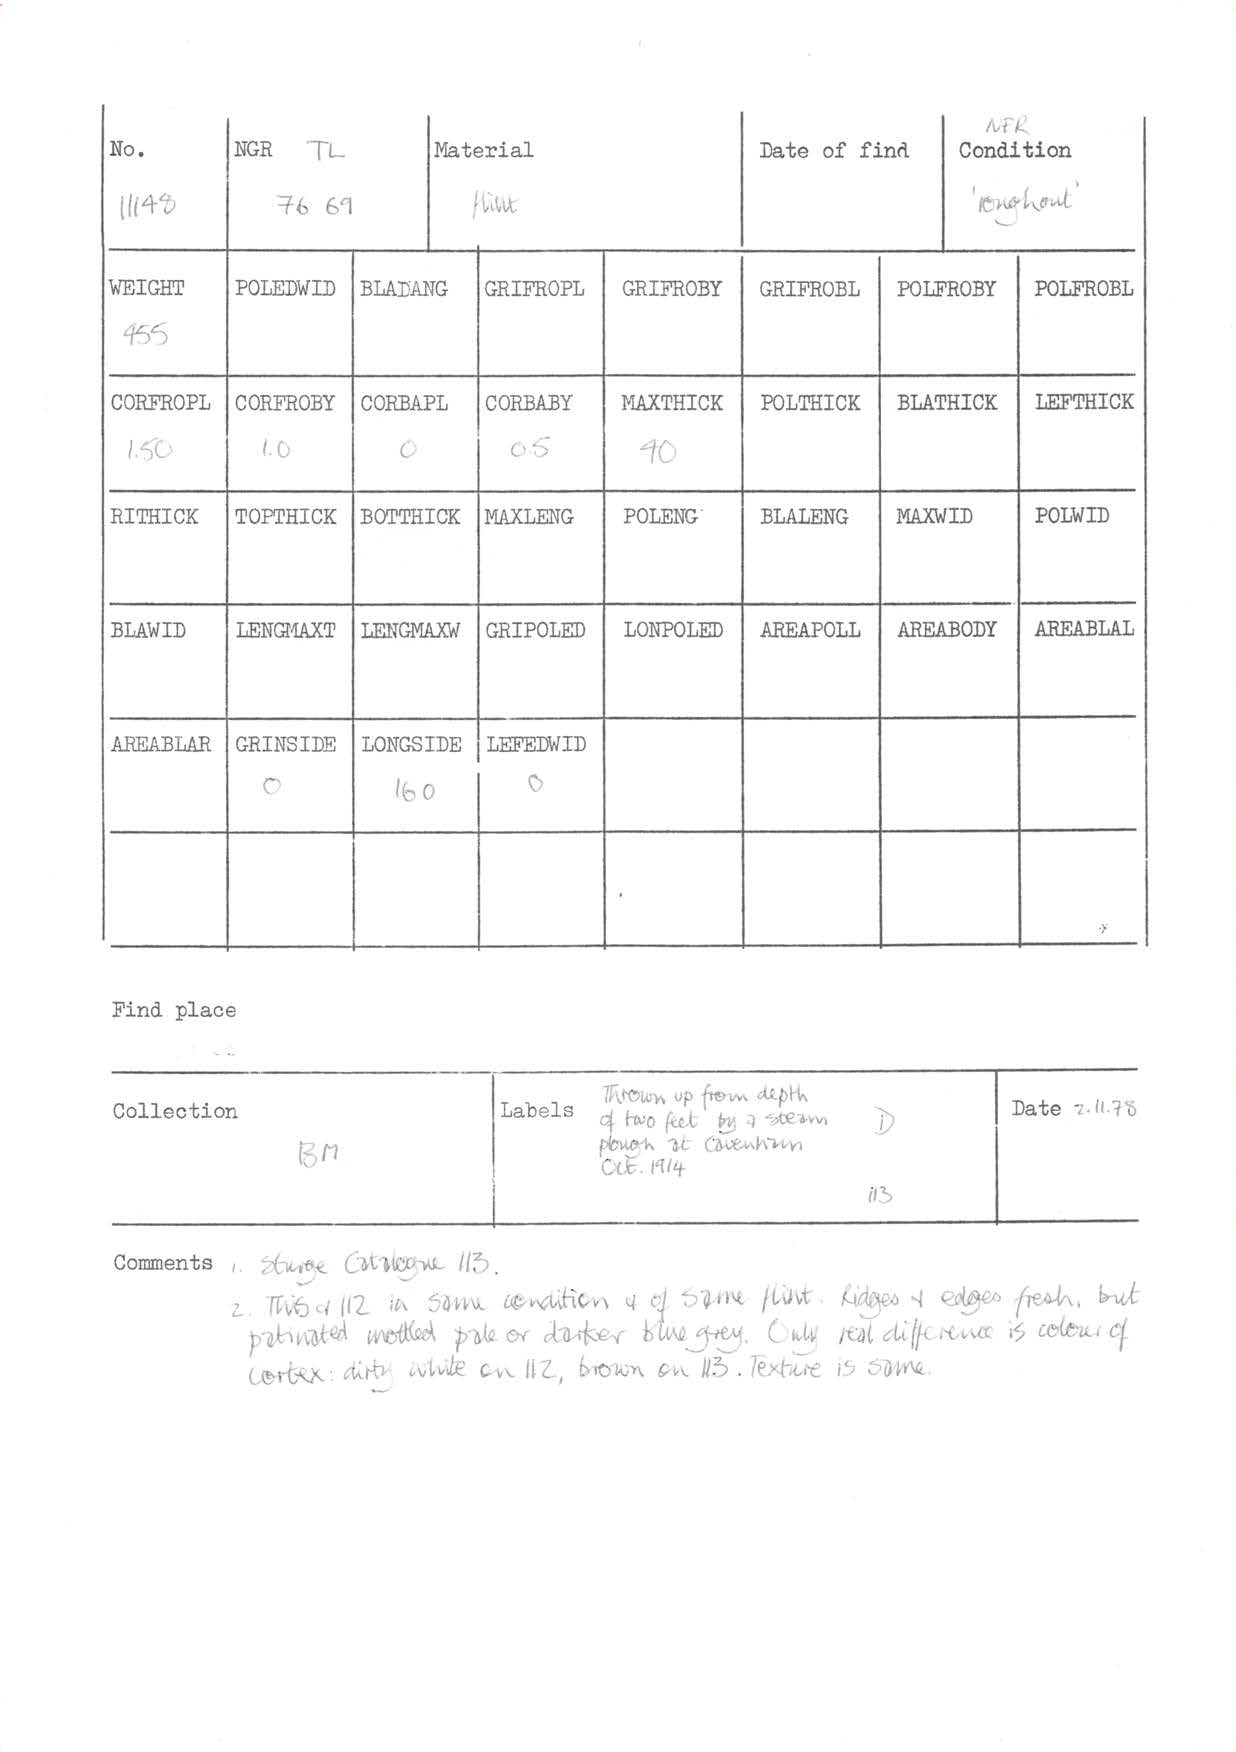 NFR
No. NGR TL Material Date of find Condition
11148 76 69 flint 'roughout'
WEIGHT POLEDWID BLADANG GRIFROPL GRIFROBY GRIFROBL POLFROBY POLFROBL
455
CORFROPL CORFROBY CORBAPL CORBABY MAXTHICK POLTHICK BLATHICK LEFTHICK
1.50 1.0 0 0.5 40
RITHICK TOPTHICK BOTTHICK MAXLENG POLENG BLALENG MAXWID POLWID
BLAWID LENGMAXT LENGMAXW GRIPOLED LONPOLED AREAPOLL AREABODY AREABLAL
AREABLAR GRINSIDE LONGSIDE LEFEDWID
0 160 0
Find place
Collection
BM
Labels
Thrown up from depth
of two feet by a steam
plough at Cavenham
Oct. 1914
113
Date 2.11.78
Comments 1. Sturge Catalogue 113.
2. This & 112 in same condition & of same flint. Ridges & edges fresh, but
patinated mottled pale or darker blue grey. Only real difference is colour of
cortex: dirty white on 112, brown on 113. Texture is same.